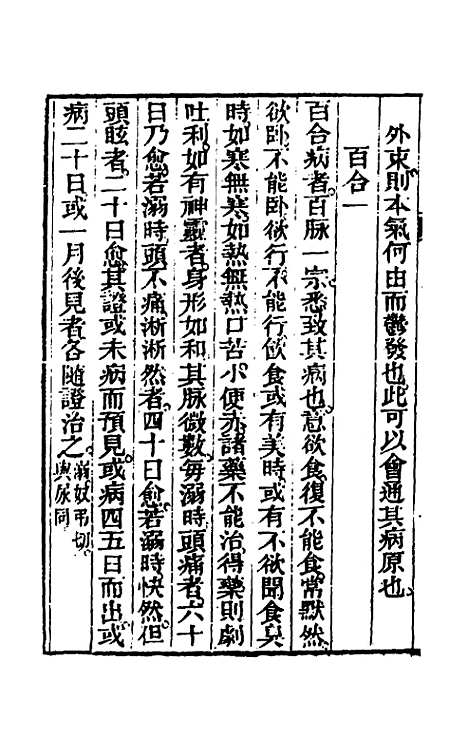 外束則本氣何由而鬱發也此可以會通其病原也
百合一
百合病者百脉一宗悉致其病也意欲食復不能食常默然
欲卧不能卧欲行不能行飲食或有美時或有不欲聞食臭
時如寒無寒如熱無熱口苦小便赤諸藥不能治得藥則劇
吐利如有神靈者身形如和其脉微數每溺時頭痛者六十
日乃愈若溺時頭不痛淅淅然者四十日愈若溺時快然但
頭眩者二十日愈其證或未病而預見或病四五日而出或
病二十日或一月後見者各隨證治之溺奴弔切與尿同